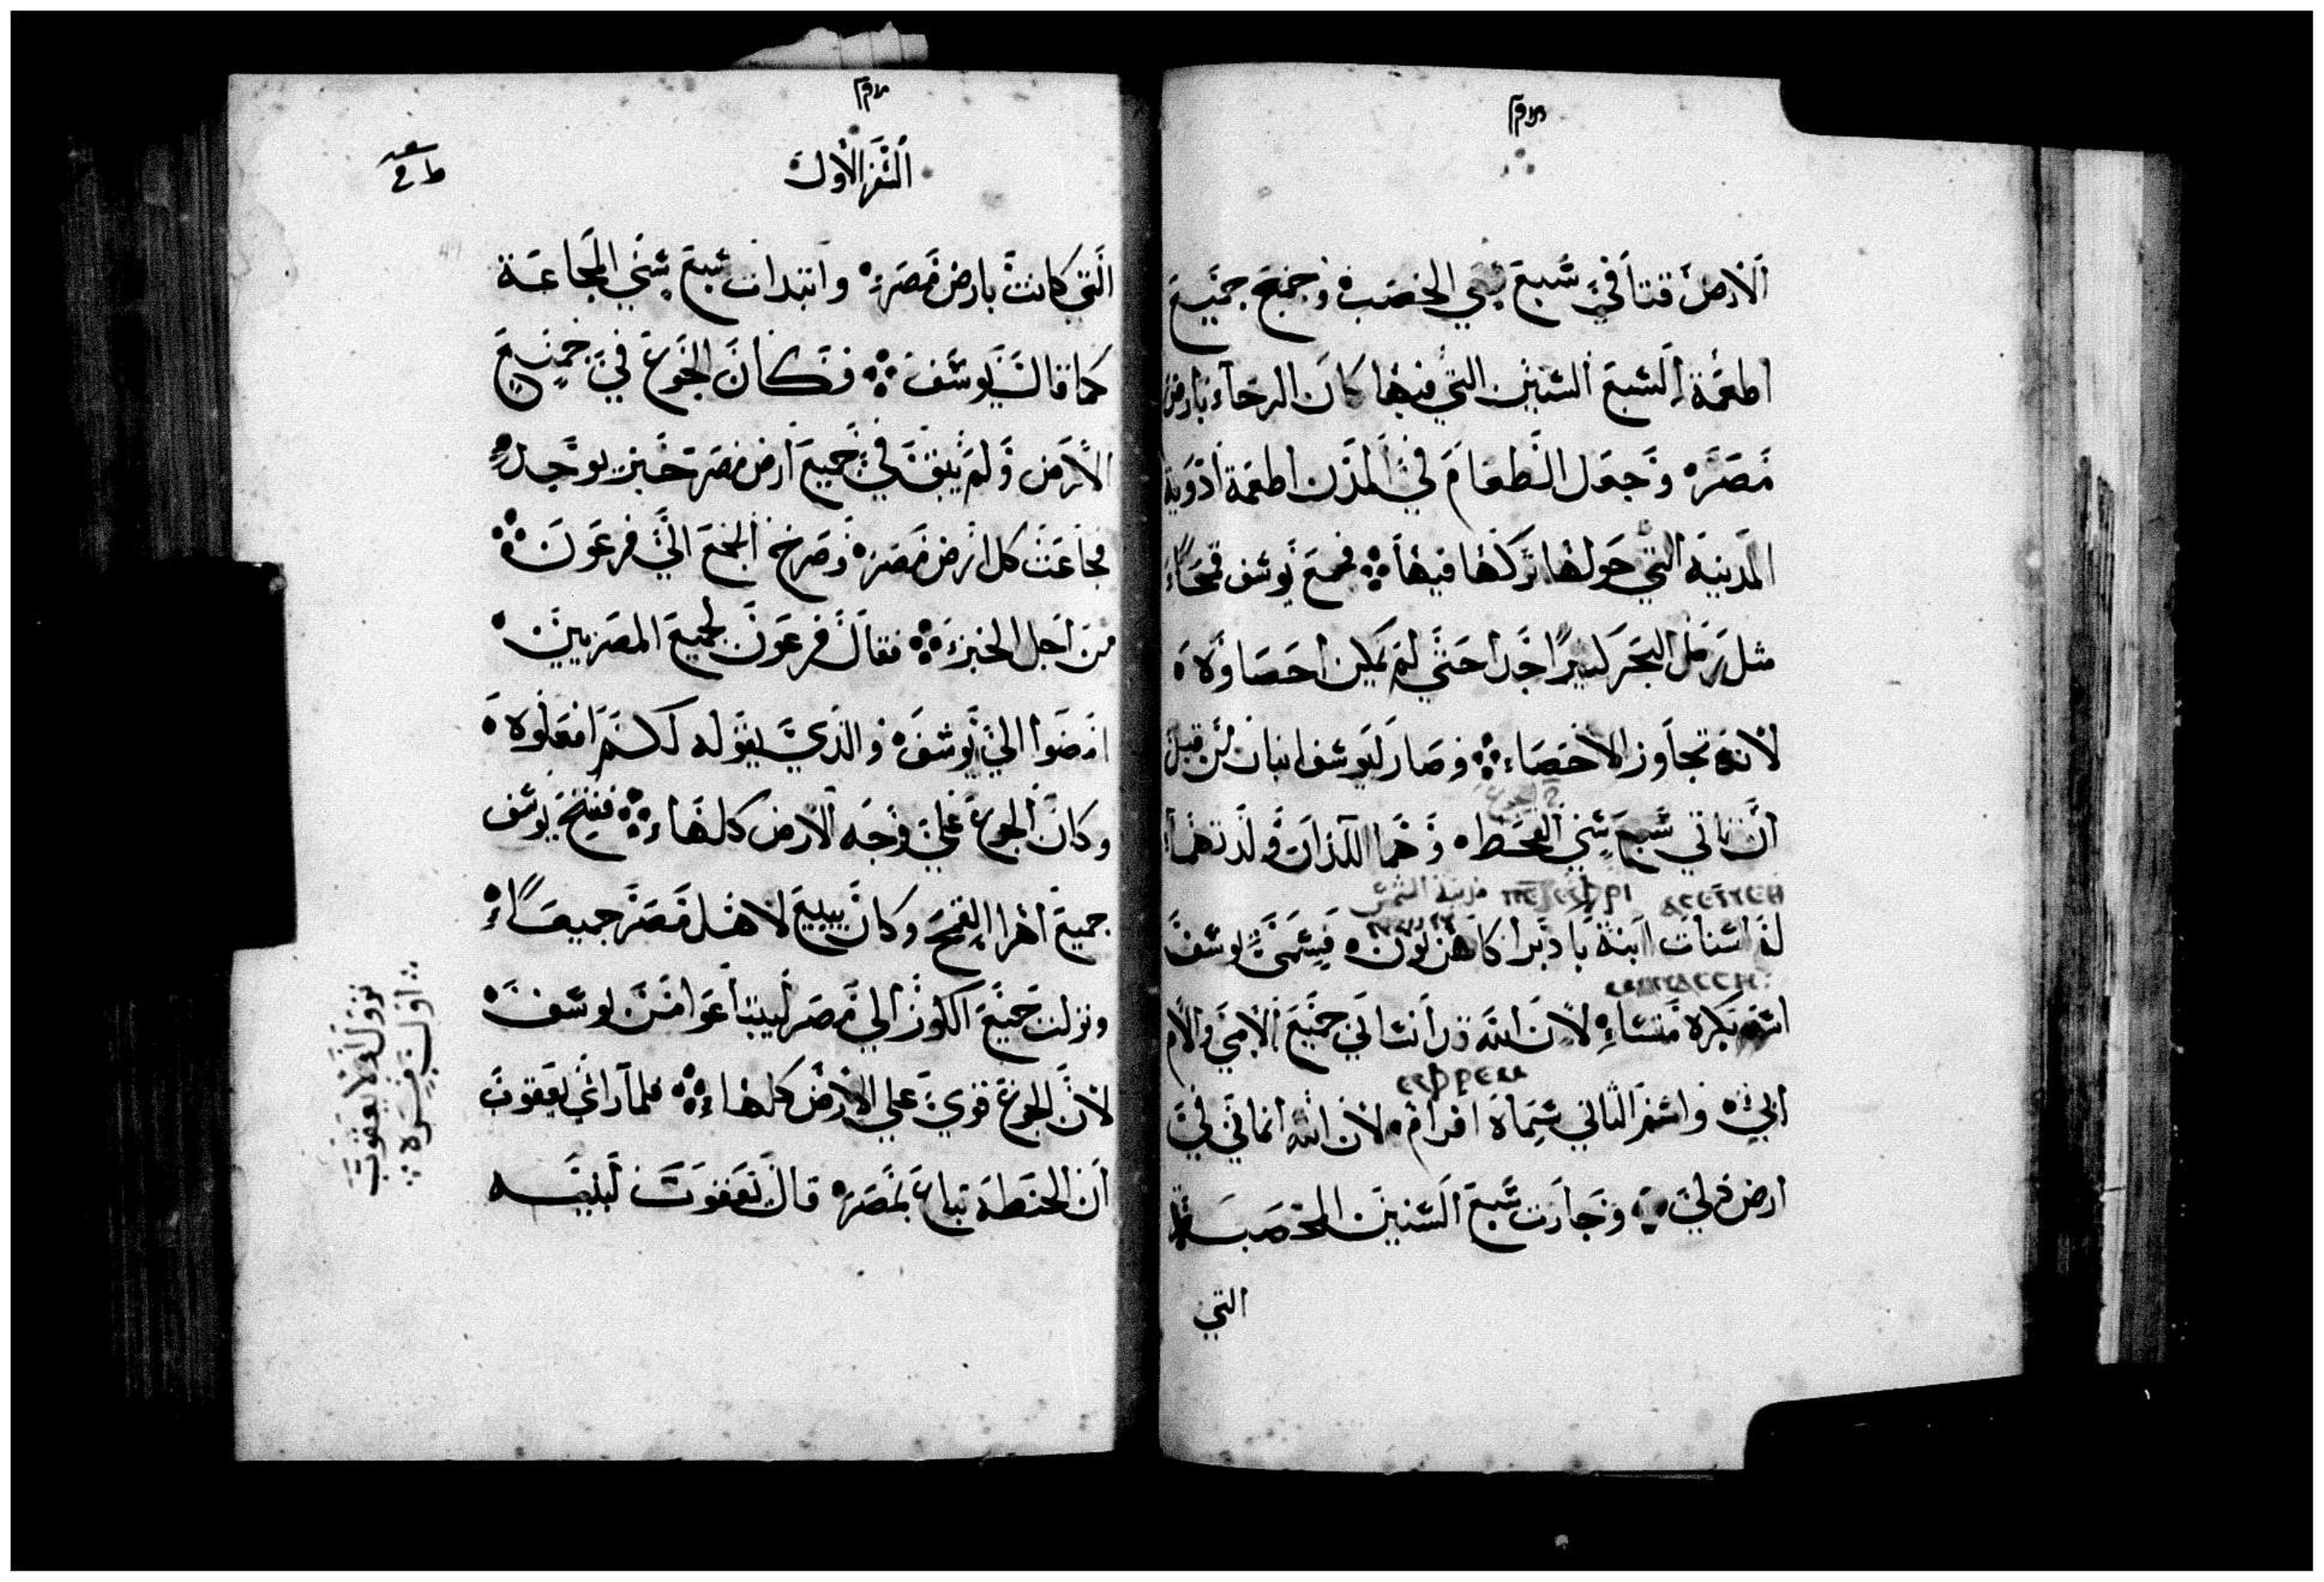 الارض قتا في سبع سني الخصب وجمع جميع
اطعمة السبع السنين التي فيها كان الرخاء بارض
مصر وجعل الطعام في المدن اطعمة
المدينة التي حولها تركها فيها فجمع يوسف قمحاً
مثل رمل البحر كثيراً جدا حتي لم يمكن احصاوه
لانه تجاوز الاحصاء وصار ليوسف ابنان من قبل
ان تاتي سبع سني القحط وهما اللذان ولدتهما
مدينة الشمس
له اسنات ابنة كاهن اون فسمي يوسف
اسم بكره منسا لان الله قد انساني جميع الامي والام
ⲉⲫⲣⲉⲙ
ابي واسم الثاني سماه افرام لان الله انماني في
ارض ذلي وجازت سبع السنين المخصبة
التي
السفر الاول
التي كانت بارض مصر وابتدات سبع سني المجاعة
كما قال يوسف فكان الجوع في جميع
الارض ولم يبق في جميع ارض مصر خبز يوجد
فجاعت كل ارض مصر وصرخ الجمع الي فرعون
من اجل الخبز فقال فرعون لجميع المصريين
امضوا الي يوسف والذي يقوله لكم افعلوه
وكان الجوع علي وجه الارض كلها ففتح يوسف
جميع اهرا القمح وكان يبيع لاهل مصر جميعاً
ونزلت جميع الكور الي مصر ليبتاعوا من يوسف
لان الجوع قوي علي الارض كلها فلما راي يعقوب
ان الحنطة تباع بمصر قال يعقوب لبنيه
نزول اولاد يعقوب
اول مره